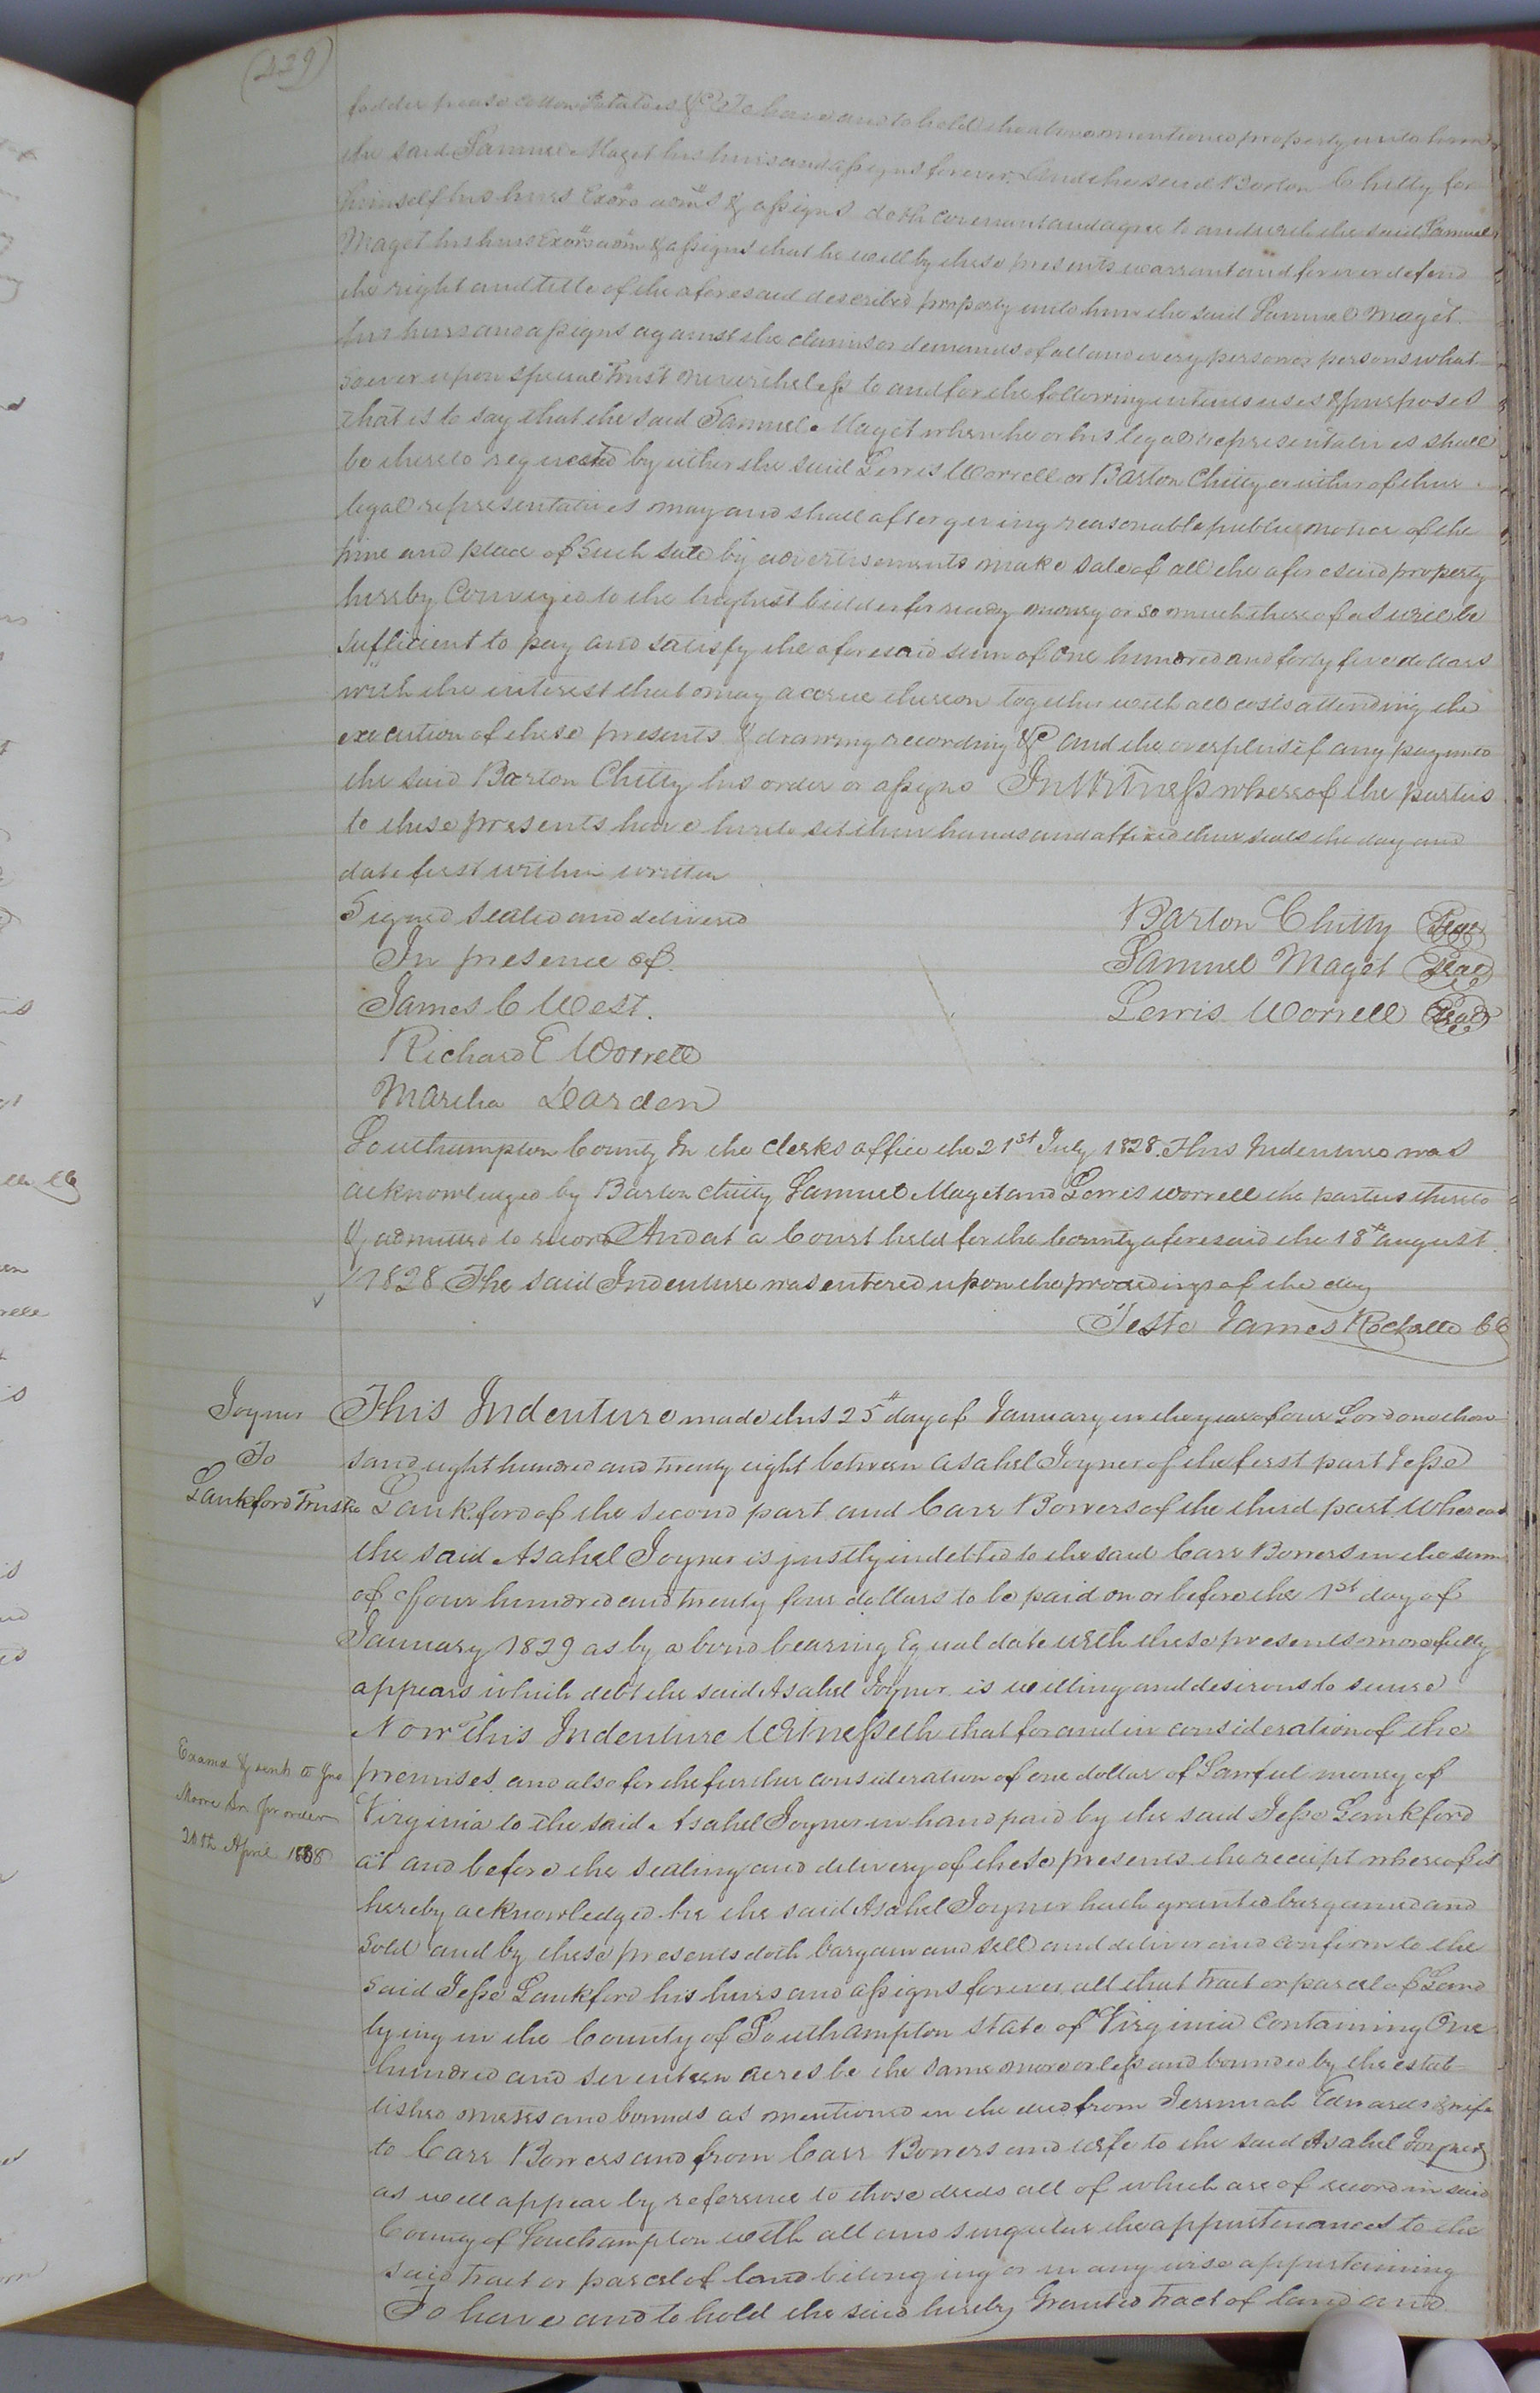 (239)
fodder pease cotton Potatoes &c To have and to hold the above mentioned property unto him
the said Samuel Maget his heirs and assigns forever. And the said Barton Chitty for
himself his heirs Exors admrs & assigns doth covenant and agree to and with the said Samuel
Maget his heirs Exors admrs & assigns that he will by these presents warrant and forever defend
the right and title of the aforesaid described property unto him the said Samuel Maget
his heirs and assigns against the claims or demands of all and every person or persons what-
soever upon special Trust nevertheless to and for the following intents uses & purposes
that is to say that the said Samuel Maget when he or his legal representatives shall
be thereto requested by either the said Lewis Worrell or Barton Chitty or either of their
legal representatives may and shall after giving reasonable public notice of the
time and place of Such sale by advertisements make sale of all the aforesaid property
hereby Conveyed to the highest bidder for ready money or so much thereof as will be
sufficient to pay and satisfy the aforesaid sum of one hundred and forty five dollars
with the interest that may accrue thereon together with all costs attending the
execution of these presents & drawing recording &c and the overplus if any pay unto
the said Barton Chitty his order or assigns In Witness whereof the parties
to these presents have hereto set their hands and affixed their seals the day and
date first within written
Signed sealed and delivered
In presence of
James C West.
Richard E Worrell
Martha Darden
Barton Chitty Seal
Samuel Maget Seal
Lewis Worrell Seal
Southampton County In the Clerks office the 21st July 1828. This Indenture was
acknowledged by Barton Chitty Samuel Maget and Lewis Worrell the parties thereto
& admitted to record And at a Court held for the County aforesaid the 18th august
1828 The said Indenture was entered upon the proceedings of the day
Teste James Rochelle CC
Joyner
To
Lankford Trustee
This Indenture made this 25th day of January in the year of our Lord one thou-
sand eight hundred and twenty eight between Asahel Joyner of the first part Jesse
Lankford of the second part and Carr Bowers of the third part. Whereas
the said Asahel Joyner is justly indebted to the said Carr Bowers in the sum
of four hundred and twenty four dollars to be paid on or before the 1st day of
January 1829 as by a bond bearing Equal date with these presents more fully
appears which debt the said Asahel Joyner is willing and desirous to secure
Now This Indenture Witnesseth that for and in consideration of the
premises and also for the further consideration of one dollar of Lawful money of
Virginia to the said Asahel Joyner in hand paid by the said Jesse Lankford
at and before the sealing and delivery of these presents the receipt whereof is
hereby acknowledged he the said Asahel Joyner hath granted bargained and
sold and by these presents doth bargain and sell and deliver and confirm to the
said Jesse Lankford his heirs and assigns forever all that tract or parcel of Land
lying in the County of Southampton state of Virginia Containing One
hundred and seventeen acres be the same more or less and bounded by the estab-
lished metes and bounds as mentioned in the deed from Jeremiah Edwards & wife
to Carr Bowers and from Carr Bowers and wife to the said Asahel Joyner
as will appear by reference to those deeds all of which are of record in said
County of Southampton with all and singular the appurtenances to the
said tract or parcel of land belonging or in any wise appertaining
To have and to hold the said hereby Granted Tract of land and
Examd & sent to Jno
Moore Sr. pr order
20th April 1838